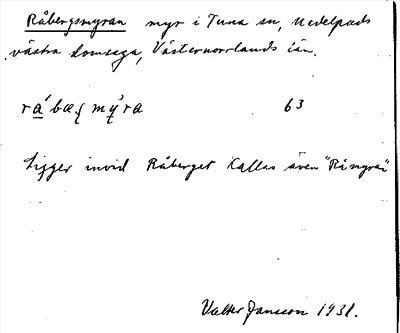 Råbergsmyran myr i Tuna sn, Medelpads
västra domsaga, Västernorrlands län.
63
Ligger invid Råberget. Kallas även "Råmyran"
Valter Jansson 1931.